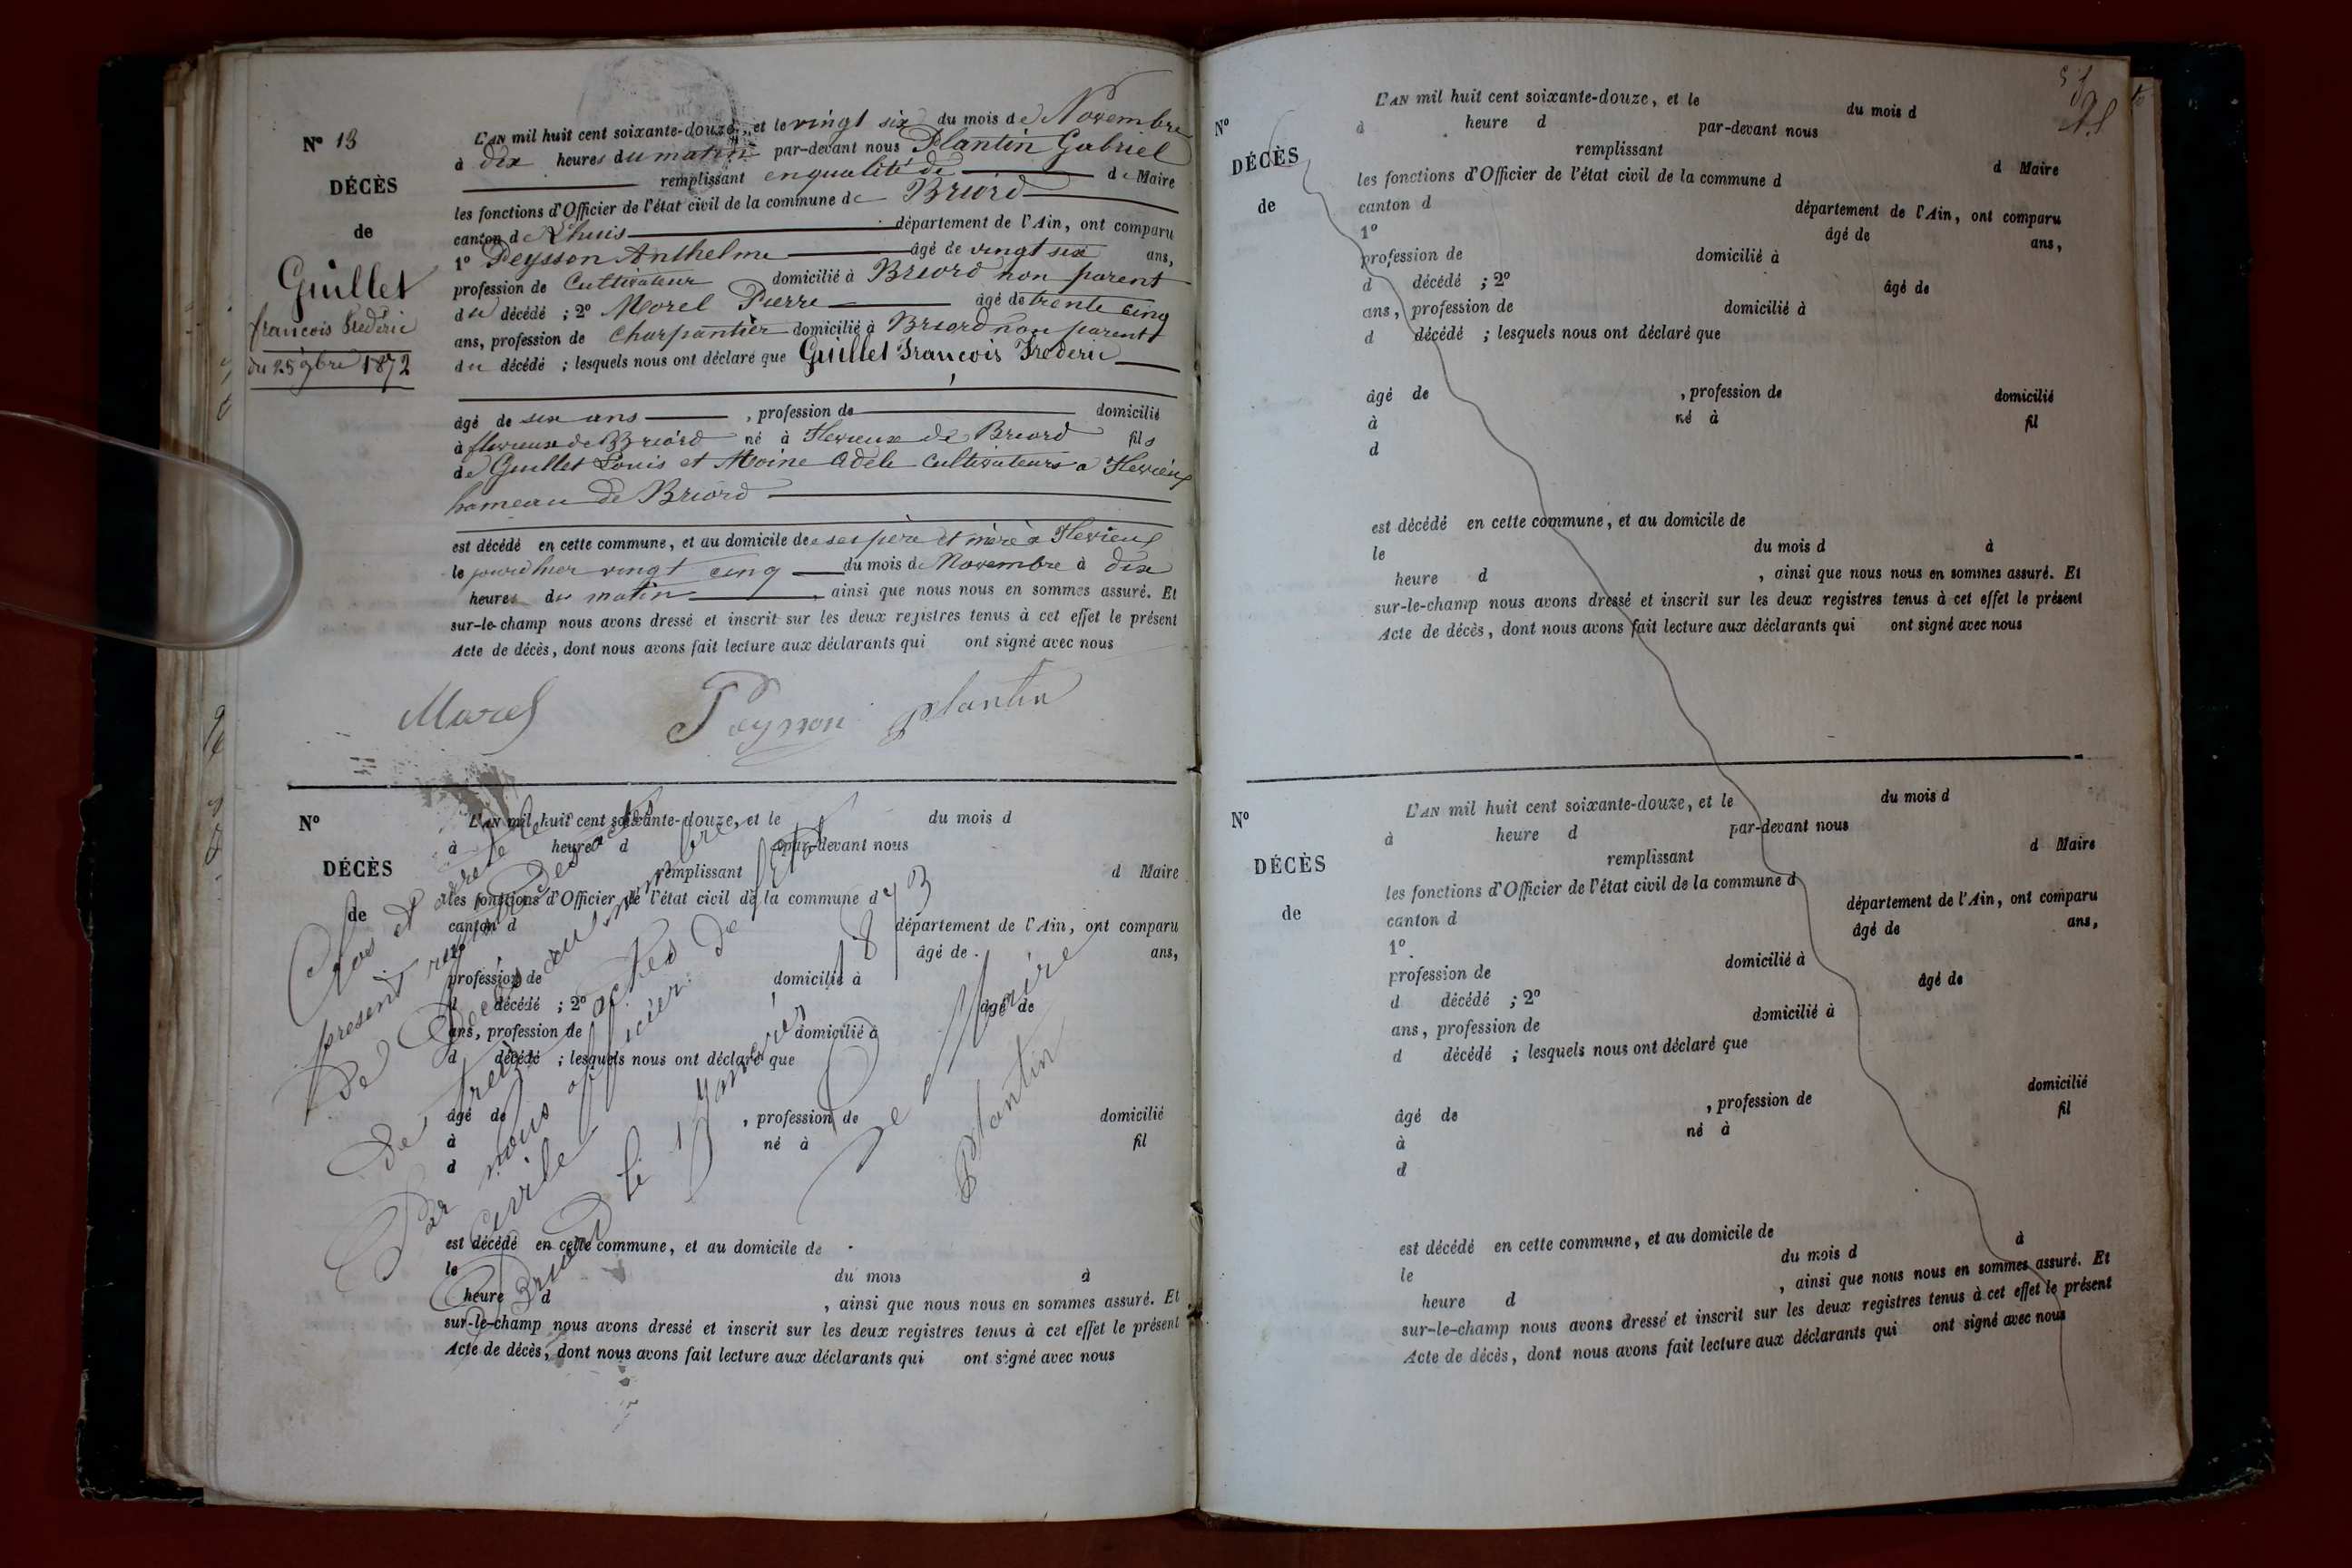 N° 13
DÉCÈS
de
Guillet
francois frederic
du 25 9bre 1872
L'AN mil huit cent soixante-douze, et le vingt six du mois de Novembre
à dix heures du matin par-devant nous Plantin Gabriel
remplissant en qualité de de Maire
les fonctions d'Officier de l'état civil de la commune de Briord
canton de Lhuis département de l'Ain, ont comparu
1° Peysson Anthelme âgé de vingt six ans,
profession de Cultivateur domicilié à Briord non parent
du décédé ; 2° Morel Pierre âgé de trente cinq
ans, profession de Charpantier domicilié à Briord non parent
du décédé ; lesquels nous ont déclaré que Guillet Francois Frederic
âgé de six ans , profession de domicilié
à flevieux de Briord né à Flevieux de Briord fils
de Guillet Louis et Moine Adele Cultivateurs a Flevieux
hameau de Briord
est décédé en cette commune, et au domicile de ses père et mère à Flevieux
le jourd'hier vingt cinq du mois de Novembre à dix
heures du matin , ainsi que nous nous en sommes assuré. Et
sur-le-champ nous avons dressé et inscrit sur les deux registres tenus à cet effet le présent
Acte de décès, dont nous avons fait lecture aux déclarants qui ont signé avec nous
Morel Peysson plantin
N°
DÉCÈS
de
L'AN mil huit cent soixante-douze, et le du mois d
à heure d par-devant nous
remplissant d Maire
les fonctions d'Officier de l'état civil de la commune d
canton d département de l'Ain, ont comparu
1° âgé de ans,
profession de domicilié à
d décédé ; 2° âgé de
ans, profession de domicilié à
d décédé ; lesquels nous ont déclaré que
âgé de , profession de domicilié
à né à fil
d
est décédé en cette commune, et au domicile de
le du mois d à
heure d , ainsi que nous nous en sommes assuré. Et
sur-le-champ nous avons dressé et inscrit sur les deux registres tenus à cet effet le présent
Acte de décès, dont nous avons fait lecture aux déclarants qui ont signé avec nous
Clos et arreté le
présent registre des actes
de Décès au nombre
de treize actes
Par nous officier de l'état
civile
Briord le 1 Janvier 1873
Le Maire
Plantin
N°
DÉCÈS
de
L'AN mil huit cent soixante-douze, et le du mois d
à heure d par-devant nous
remplissant d Maire
les fonctions d'Officier de l'état civil de la commune d
canton d département de l'Ain, ont comparu
1° âgé de ans,
profession de domicilié à
d décédé ; 2° âgé de
ans, profession de domicilié à
d décédé ; lesquels nous ont déclaré que
âgé de , profession de domicilié
à né à fil
d
est décédé en cette commune, et au domicile de
le du mois d à
heure d , ainsi que nous nous en sommes assuré. Et
sur-le-champ nous avons dressé et inscrit sur les deux registres tenus à cet effet le présent
Acte de décès, dont nous avons fait lecture aux déclarants qui ont signé avec nous
N°
DÉCÈS
de
L'AN mil huit cent soixante-douze, et le du mois d
à heure d par-devant nous
remplissant d Maire
les fonctions d'Officier de l'état civil de la commune d
canton d département de l'Ain, ont comparu
1° âgé de ans,
profession de domicilié à
d décédé ; 2° âgé de
ans, profession de domicilié à
d décédé ; lesquels nous ont déclaré que
âgé de , profession de domicilié
à né à fil
d
est décédé en cette commune, et au domicile de
le du mois d à
heure d , ainsi que nous nous en sommes assuré. Et
sur-le-champ nous avons dressé et inscrit sur les deux registres tenus à cet effet le présent
Acte de décès, dont nous avons fait lecture aux déclarants qui ont signé avec nous